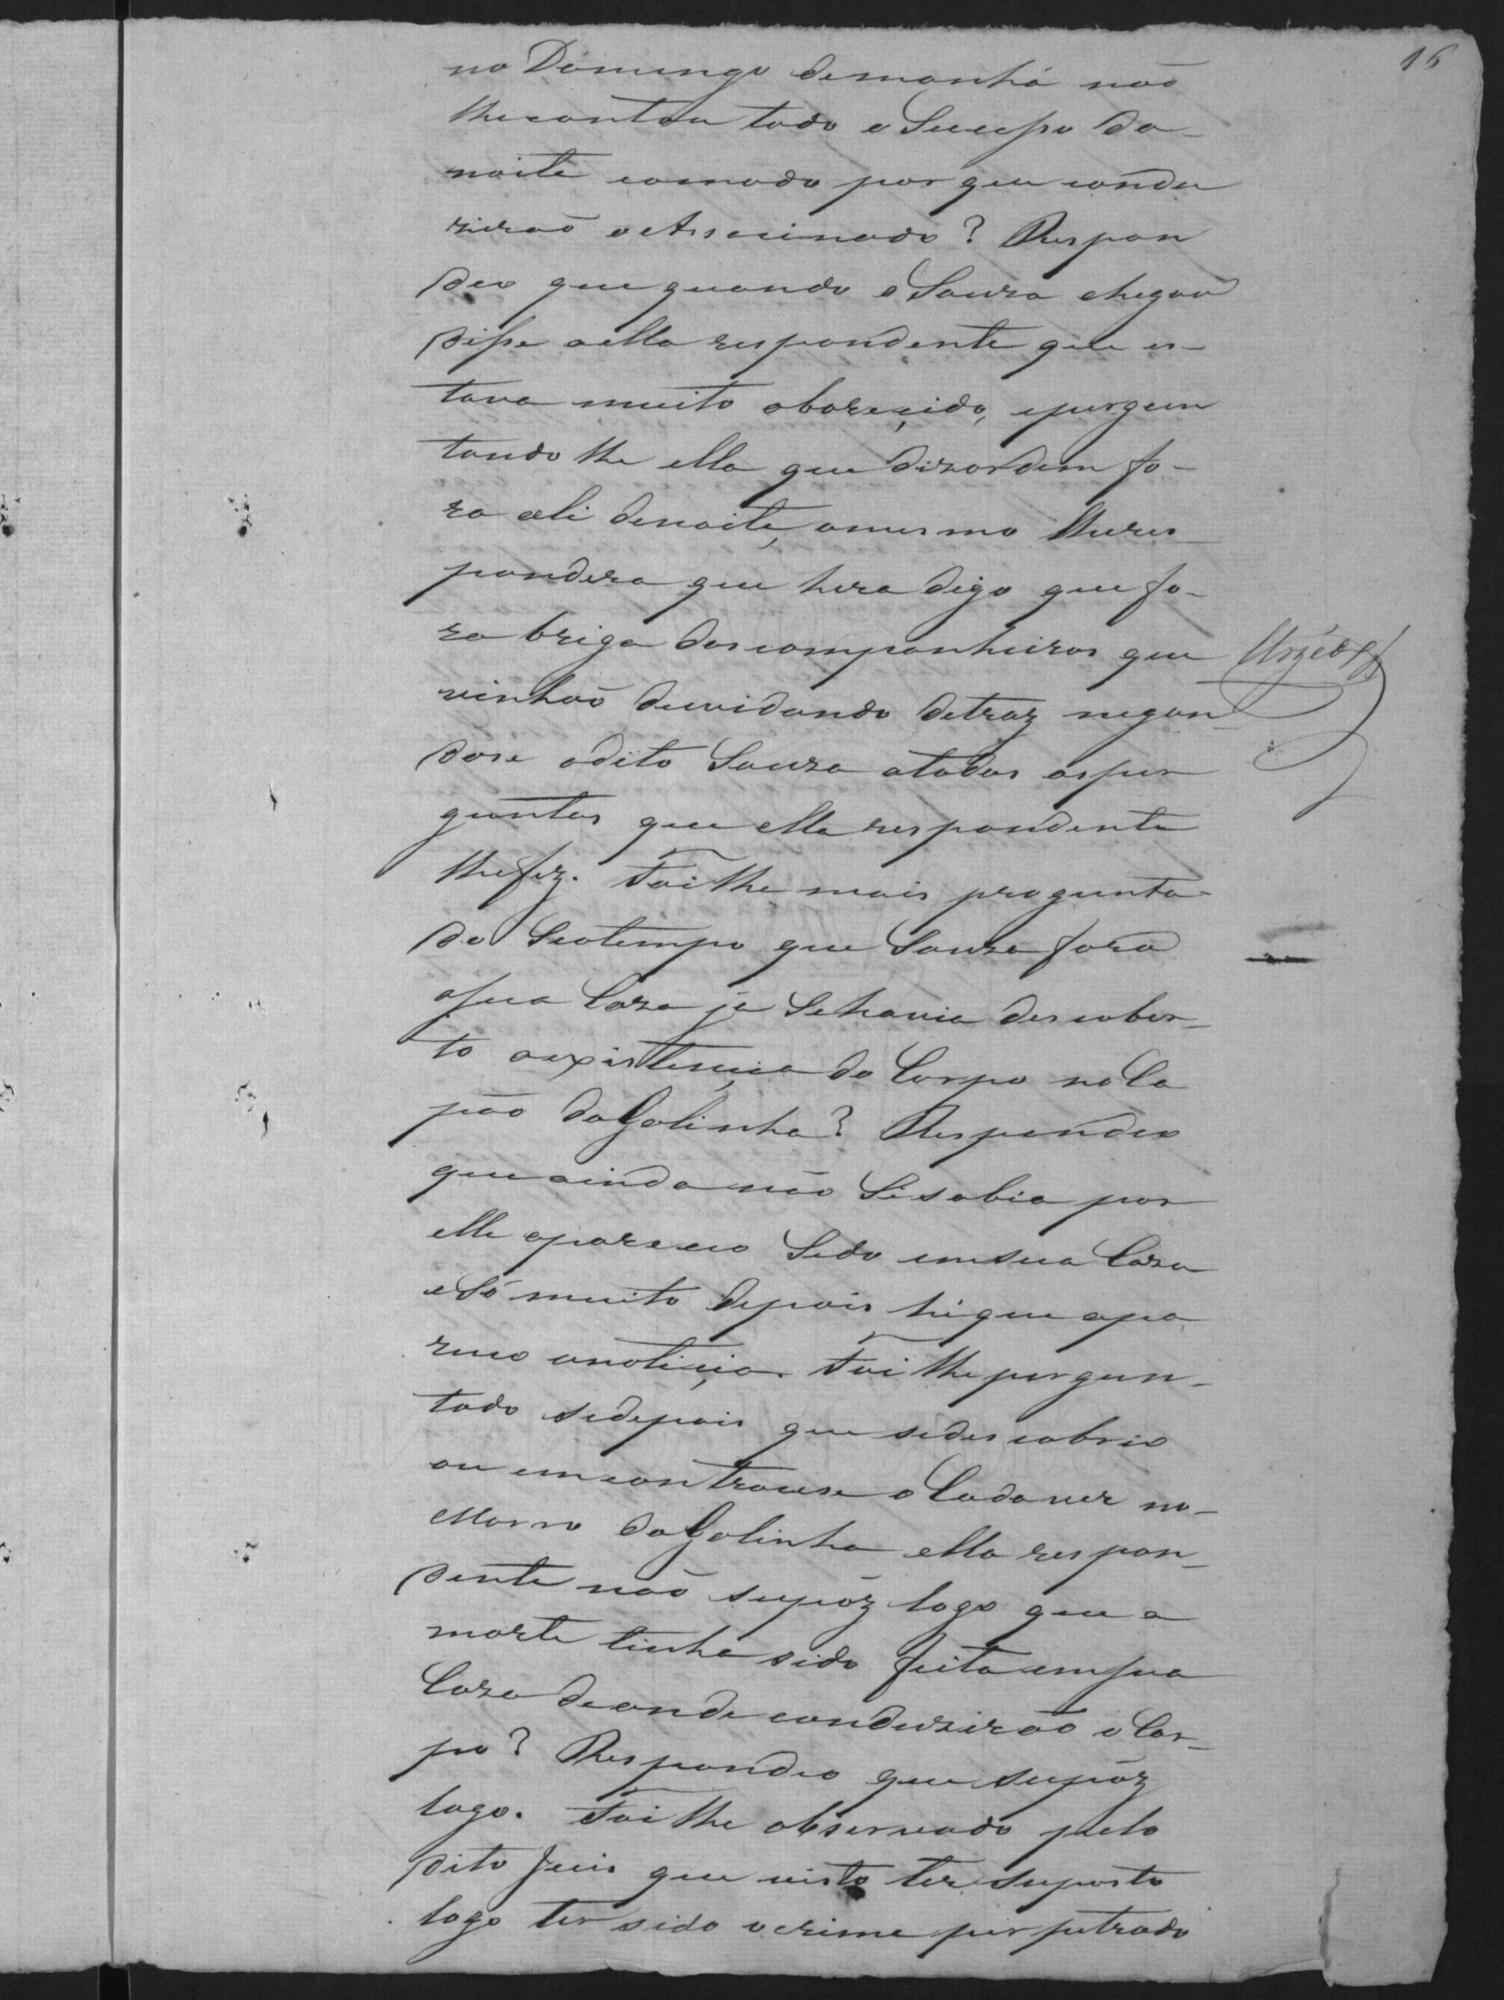 16
no Domingo demanhã não
lhecontou todo o Sucesso da
noite eomodo por que condu
zirão o Assacinado? Respon
deo que quando o Souza chegou
disse aella respondente que es-
tava muito aborecido, epergun
tando lhe ella que dizordem fo-
ra ali denoite, omesmo lheres
pondera que hera digo que fo-
ra briga doscompanheiros que
vinhão duvidando detraz negan
dose odito Souza atodas asper
guntas que ella respondente
lhefez. Foi lhe mais progunta-
do Seotempo que Souza fora
asua Caza já Sehavia descober-
to aexistencia do Corpo no Ca
pão da Galinha? Respondeo
que ainda não Sesabia por
elle apareceo Sedo emsua Caza
e Só muito depois hé que apa
receo anoticia. Foi lhe pergun-
tado sedepois que sedescobrio
ou emcontrouse o Cadaver no
Morro da Galinha ella respon-
dente não supôz logo que a
morte tinha sido feita emsua
Caza deonde conduzirão o Cor-
po? Respondeo que supôz
logo. Foi lhe observado pelo
dito Juis que visto ter suposto
logo ter sido ocrime perpetrado